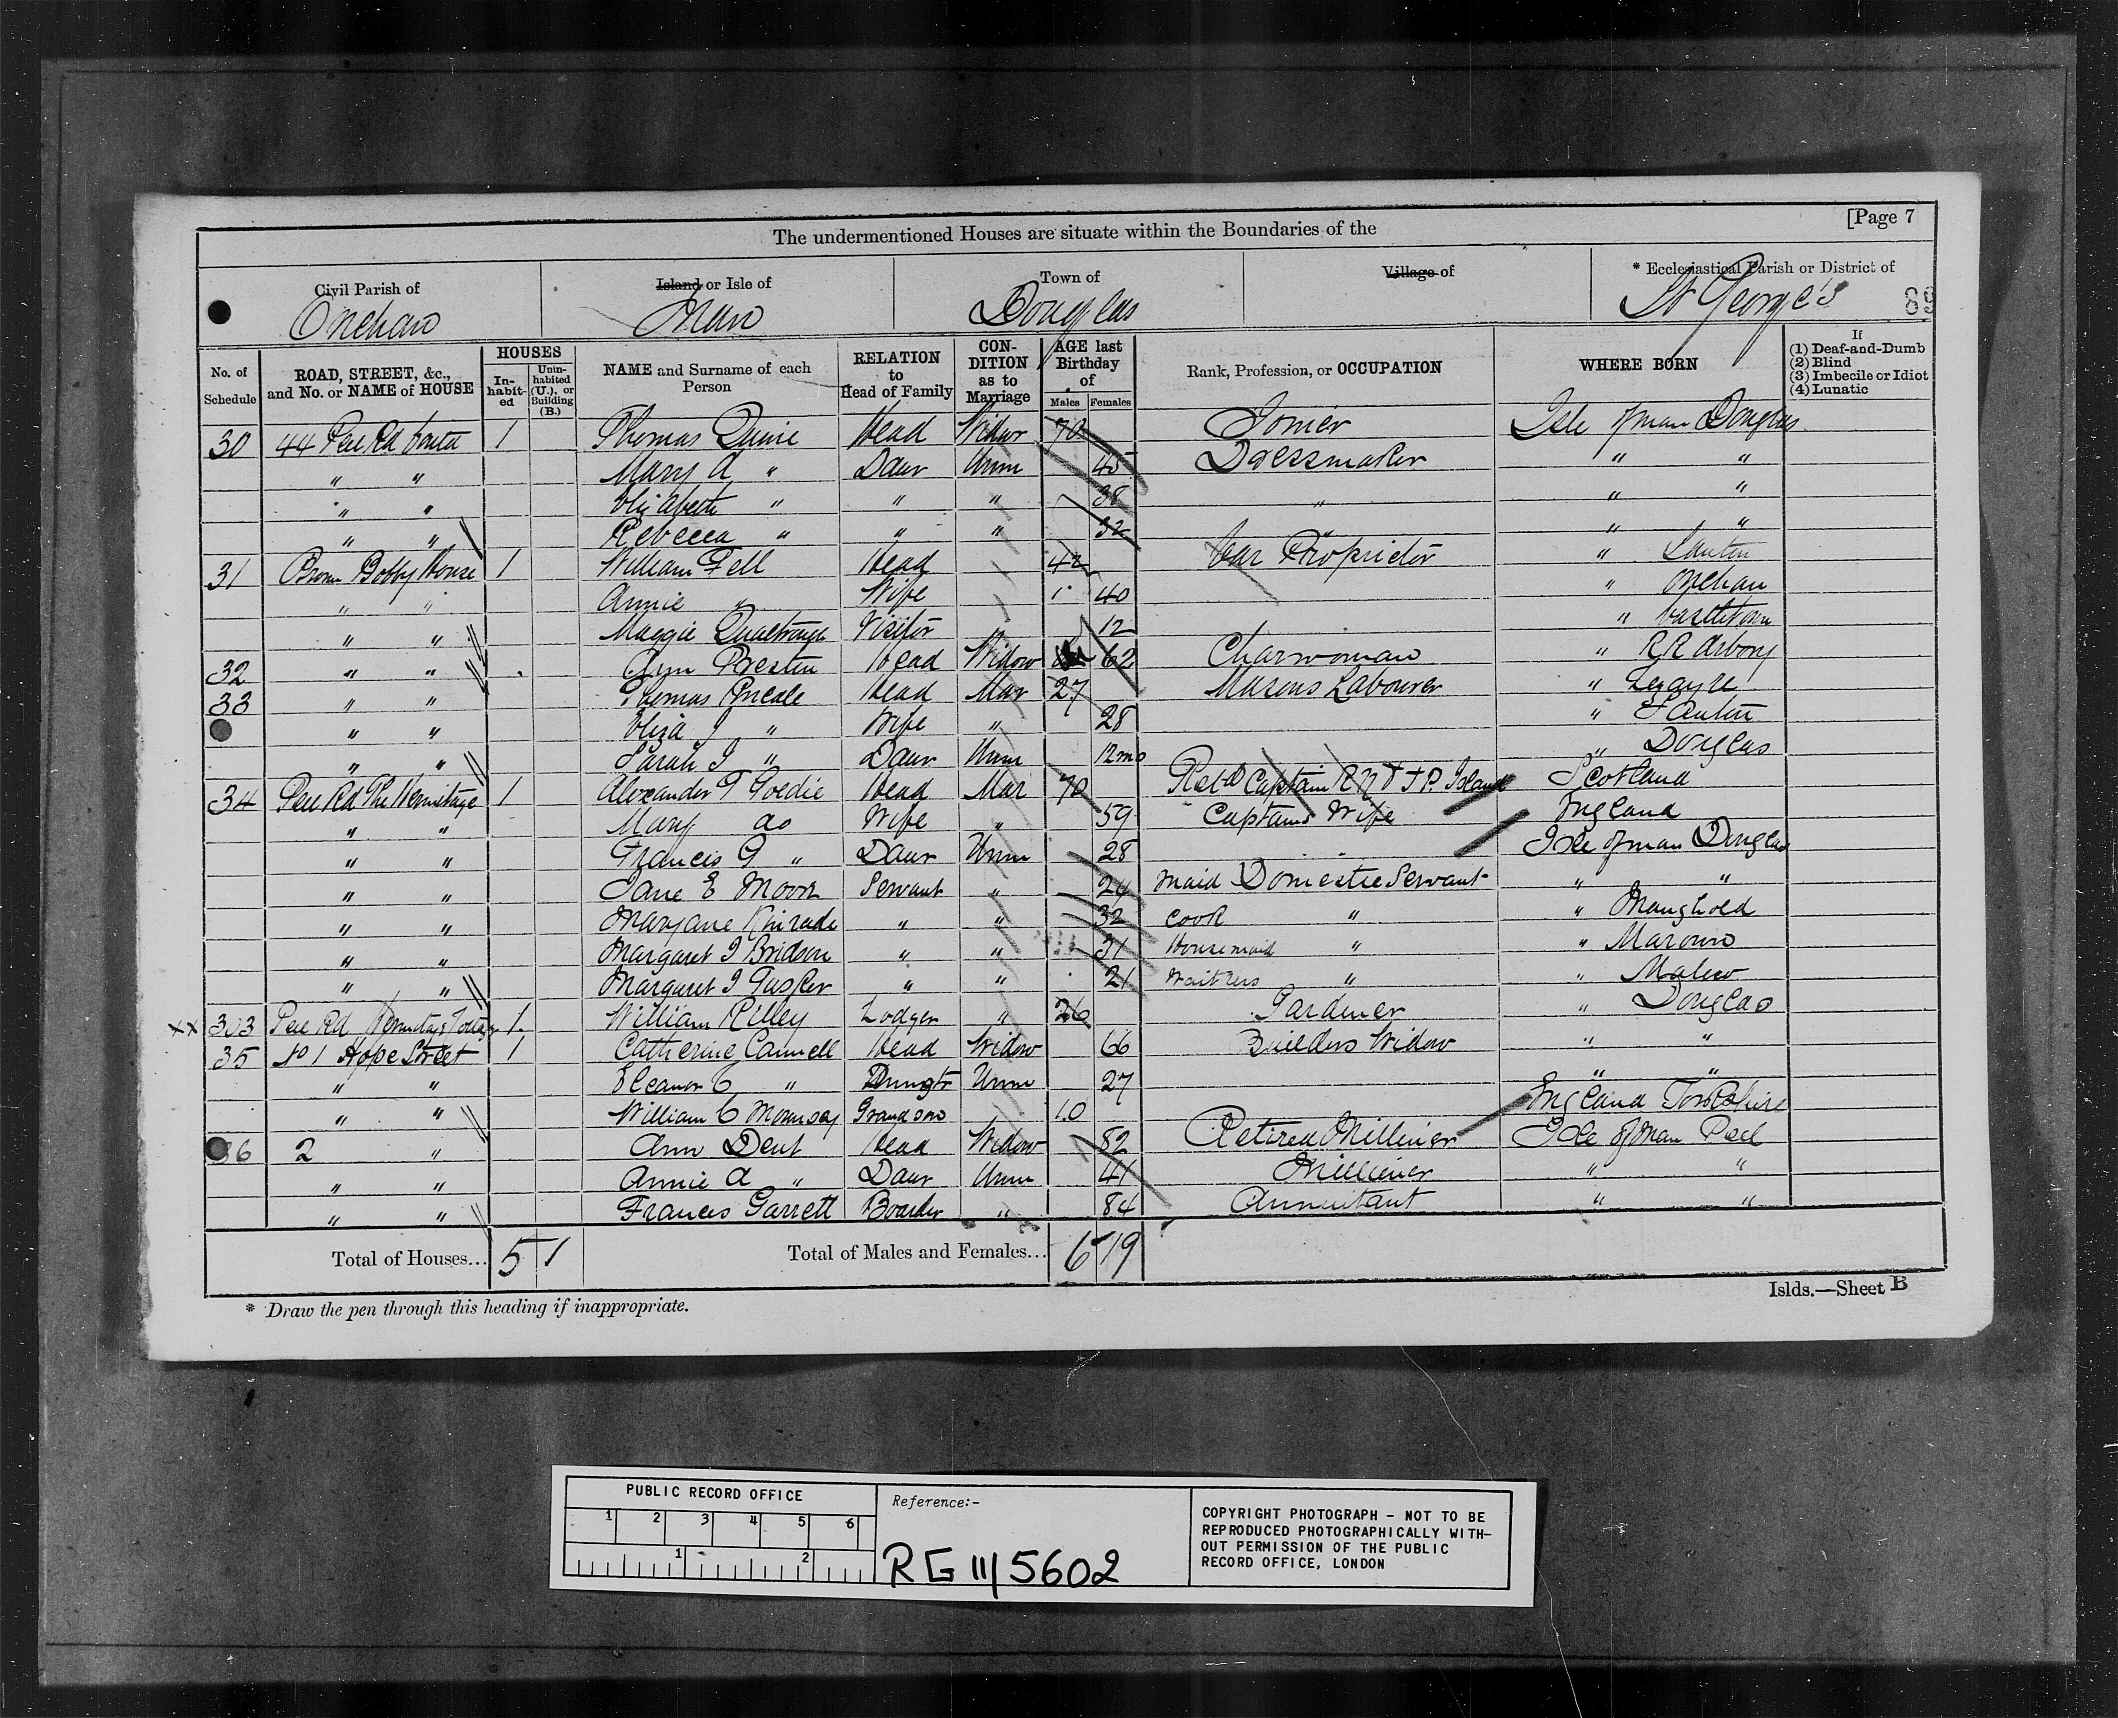 [Page 7
The undermentioned Houses are situate within the Boundaries of the
Civil Parish of Island or Isle of Town of Village of * Ecclesiastical Parish or District of
Onchan Man Douglas St George's 89
No. of Schedule ROAD, STREET, &c., and No. or NAME of HOUSE HOUSES In-habit-ed Unin-habited (U.), or Building (B.) NAME and Surname of each Person RELATION to Head of Family CON-DITION as to Marriage AGE last Birthday of Males Females Rank, Profession, or OCCUPATION WHERE BORN If (1) Deaf-and-Dumb (2) Blind (3) Imbecile or Idiot (4) Lunatic
30 44 Peel Rd 1 Thomas Quine Head Widwr 70 Joiner Isle of Man Douglas
" " Mary A " Daur Unm 45 Dressmaker " "
" " Elizabeth " " " 38 " " "
" " Rebecca " " " 32 " " "
31 Brown Bobby House 1 William Fell Head 42 Car Proprietor " Santon
" " Annie " Wife 40 " Onchan
" " Maggie Visitor 12 " Castletown
32 " " Ann Preston Head Widow 62 Charwoman " Arbory
33 " " Thomas Kneale Head Mar 27 Masons Labourer " Lezayre
" " Eliza J " Wife " 28 "
" " Sarah J " Daur Unm 12mo " Douglas
34 Peel Rd The Hermitage 1 Alexander T Goldie Head Mar 70 Retd Captain R N & J P Island Scotland
" " Mary do Wife " 59 Captains Wife England
" " Francis G " Daur Unm 28 " Isle of Man Douglas
" " Jane E Moor Servant " 24 Maid Domestic Servant " "
" " Maryane Kinrade " " 32 Cook " " Maughold
" " Margaret J Bridson " " 31 Housemaid " " Marown
" " Margaret J Tasker " " 21 Waitress " " Malew
xx 303 Peel Rd Hermitage Cottage 1 William Killey Lodger " 26 Gardener " Douglas
35 No 1 Hope Street 1 Catherine Cannell Head Widow 66 Builders Widow " "
" " Eleanor C " Daughtr Unm 27 " "
" " William C Grandson 10 England Yorkshire
36 2 " Ann Dent Head Widow 82 Retired Milliner Isle of Man Peel
" " Annie A " Daur Unm 41 Milliner " "
" " Frances Garrett Boarder " 84 Annuitant " "
Total of Houses... 5 1 Total of Males and Females... 6 19
Islds.—Sheet B
* Draw the pen through this heading if inappropriate.
PUBLIC RECORD OFFICE
1 2 3 4 5 6
1 2
Reference:-
RG 11/5602
COPYRIGHT PHOTOGRAPH - NOT TO BE
REPRODUCED PHOTOGRAPHICALLY WITH-
OUT PERMISSION OF THE PUBLIC
RECORD OFFICE, LONDON